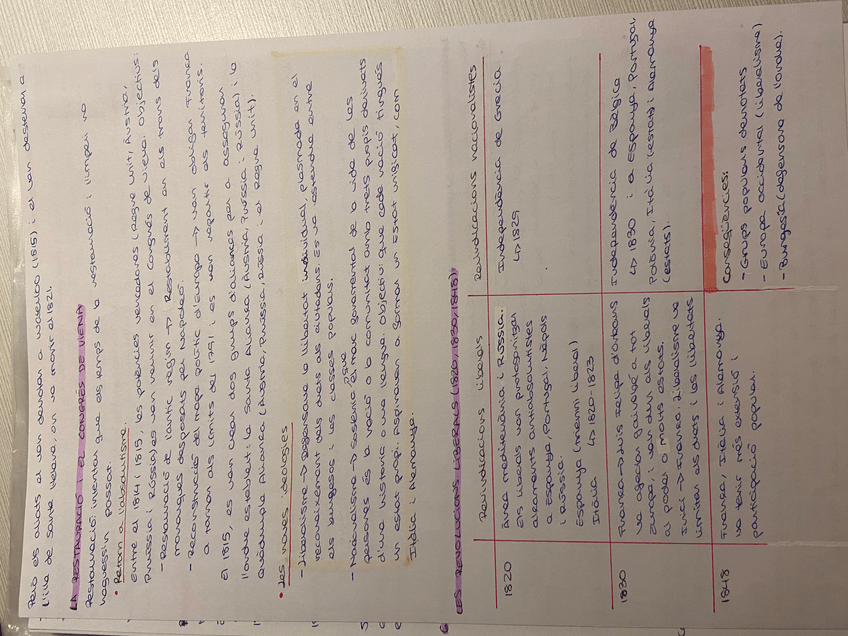 Però els aliats el van derrotar a Waterloo (1815) i el van desterrar a
l'illa de Santa Helena, on va morir el 1821.
LA RESTAURACIÓ I EL CONGRÉS DE VIENA
Restauració: intentar que els temps de la restauració i l'Imperi no
haguessin passat.
• Retorn a l'absolutisme
Entre el 1814 i 1815, les potències vencedores (Regne Unit, Àustria,
Prússia i Rússia) es van reunir en el Congrés de Viena. Objectius:
- Restauració de l'antic règim → Restabliment en els trons dels
monarques desposseïts per Napoleó.
- Reconstrucció del mapa polític d'Europa → van obligar França
a tornar als límits del 1791 i es van repartir els territoris.
El 1815, es van crear dos grups d'aliances per a assegurar
l'ordre establert: la Santa Aliança (Àustria, Prússia i Rússia) i la
Quàdruple Aliança (Àustria, Prússia, Rússia i el Regne Unit).
• Les noves ideologies
- Liberalisme → Defensava la llibertat individual, plasmada en el
reconeixement dels drets als ciutadans. Es va estendre entre
els burgesos i les classes populars.
- Nacionalisme → Sostenia que el marc governamental de la vida de les
persones és la nació o la comunitat amb trets propis derivats
d'una història o una llengua. Objectiu: que cada nació tingués
un estat propi. Aspiraven a formar un Estat unificat, com
Itàlia i Alemanya.
6. LES REVOLUCIONS LIBERALS (1820, 1830, 1848)
Reivindicacions liberals
Reivindicacions nacionalistes
1820
Àrea mediterrània i Rússia.
Els liberals van protagonitzar
alçaments antiabsolutistes
a Espanya, Portugal, Nàpols
i Rússia.
Espanya (trienni liberal)
Itàlia ↳ 1820-1823
Independència de Grècia
↳ 1829
1830
França → Lluís Felip d'Orleans
va afavorir govern a tot
Europa, i van dur als liberals
al poder a molts estats.
Inici → França. Liberalisme va
limitar els drets i les llibertats
Independència de Bèlgica
↳ 1830 i a Espanya, Portugal,
Polònia, Itàlia (estats) i Alemanya
(estats).
1848
França, Itàlia i Alemanya.
Va tenir més extensió i
participació popular.
Conseqüències:
- Grups populars derrotats
- Europa occidental (liberalisme)
- Burgesia (defensora de l'ordre).